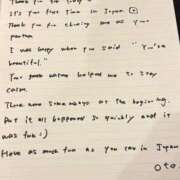 Thank you for
It's your first time in Japan
Thank you for choosing me as your
partner
I was happy when you said "You're
beautiful."
Your pocket watch helped me to stay
calm.
There were some at the beginning.
But it all happened so quickly and it
was fun :)
Have as much fun as you can in Japan
Oto.